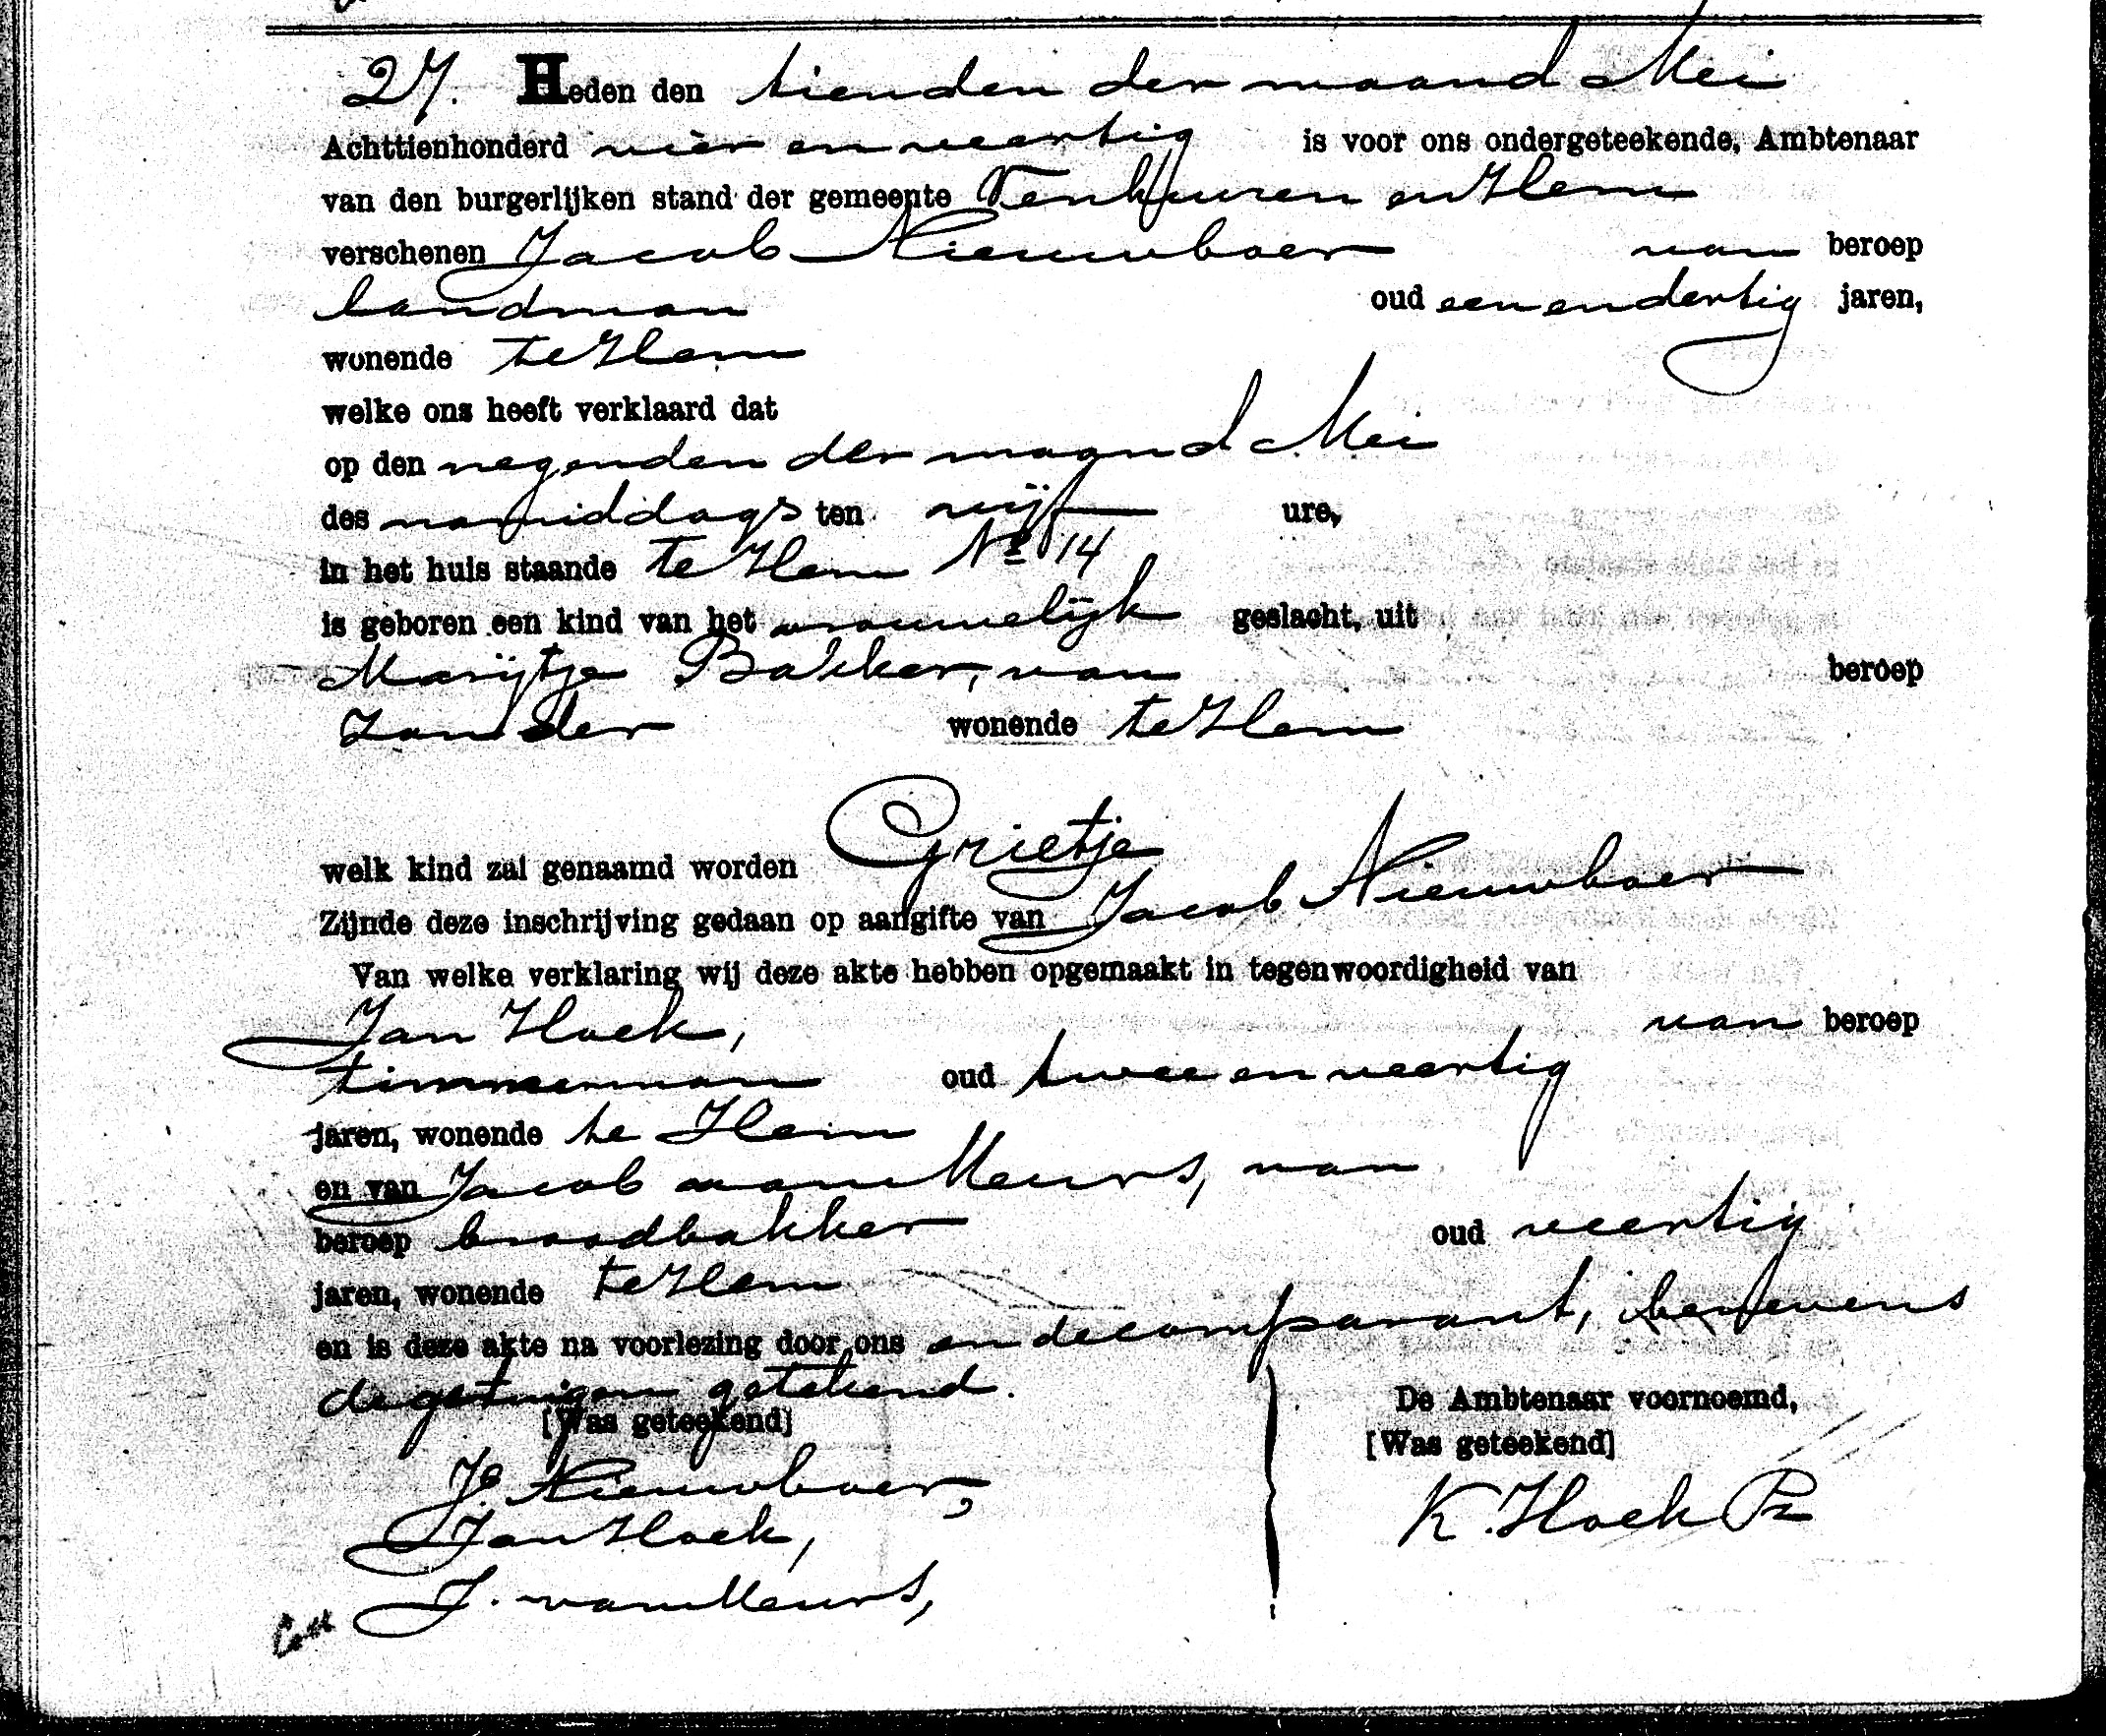 27. Heden den tienden der maand Mei
Achttienhonderd vier en veertig is voor ons ondergeteekende, Ambtenaar
van den burgerlijken stand der gemeente Venhuizen en Hem
verschenen Jacob Nieuwboer van beroep
landman oud een en dertig jaren,
wonende te Hem
welke ons heeft verklaard dat
op den negenden der maand Mei
des namiddags ten vijf ure,
in het huis staande te Hem No 14
is geboren een kind van het vrouwelijk geslacht, uit
Marijtje Bakker, van beroep
zonder wonende te Hem
welk kind zal genaamd worden Grietje
Zijnde deze inschrijving gedaan op aangifte van Jacob Nieuwboer
Van welke verklaring wij deze akte hebben opgemaakt in tegenwoordigheid van
Jan Hoek, van beroep
timmerman oud twee en veertig
jaren, wonende te Hem
en van Jacob van Meurs, van
beroep broodbakker oud veertig
jaren, wonende te Hem
en is deze akte na voorlezing door ons en de comparant, benevens
de getuigen getekend.
[Was geteekend] De Ambtenaar voornoemd,
[Was geteekend]
Jb. Nieuwboer,
K. Hoek Pz
Jan Hoek,
J. van Meurs,